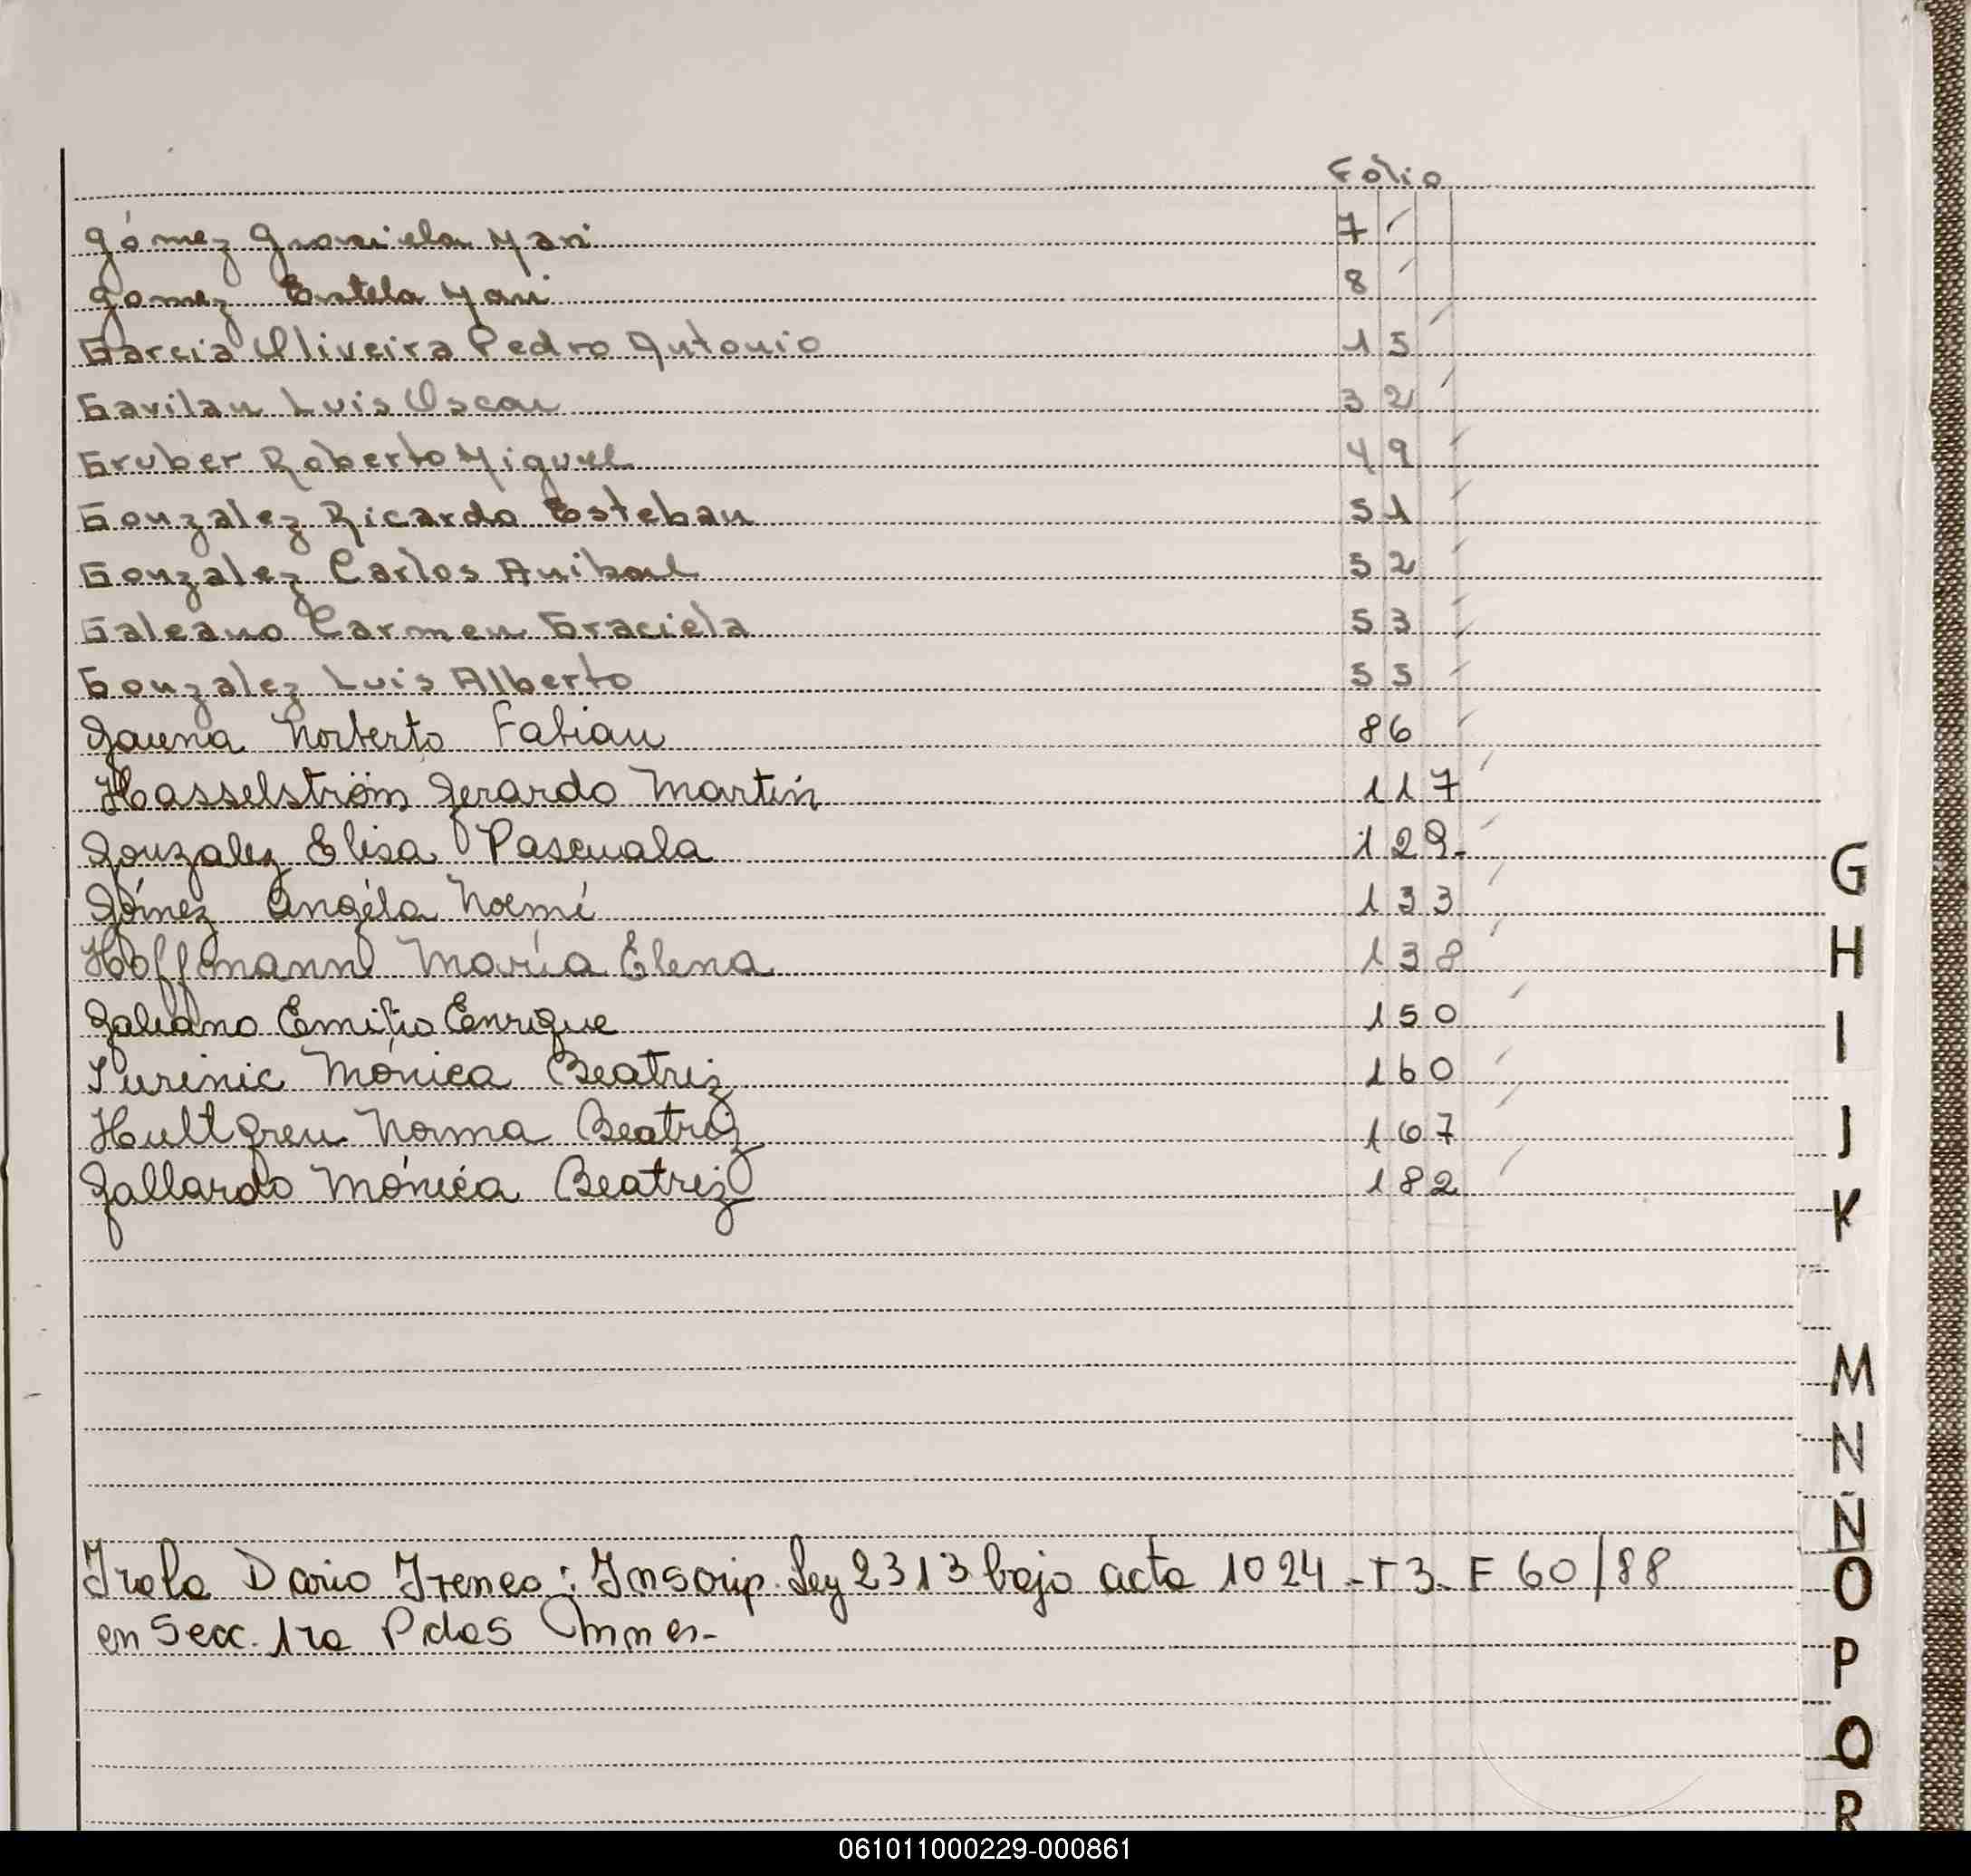 Folio
Gómez Graciela Mari 7
Gomez Estela Mari 8
Garcia Oliveira Pedro Antonio 15
Gavilan Luis Oscar 32
Gruber Roberto Miguel 49
Gonzalez Ricardo Esteban 51
Gonzalez Carlos Anibal 52
Galeano Carmen Graciela 53
Gonzalez Luis Alberto 55
Gauna Norberto Fabian 86
Hasselström Gerardo Martin 117
Gonzalez Elisa Pascuala 129-
Gómez Angela Noemí 133
Hoffmann María Elena 138
Galeano Emilio Enrique 150
Mónica Beatriz 160
Hultgren Norma Beatriz 167
Gallardo Mónica Beatriz 182
Irala Dario Ireneo: Inscrip. Ley 2313 bajo acta 1024 - T 3. F 60/88
en Secc. 1ra Pdas
G
H
I
J
K
M
N
Ñ
O
P
Q
R
061011000229-000861